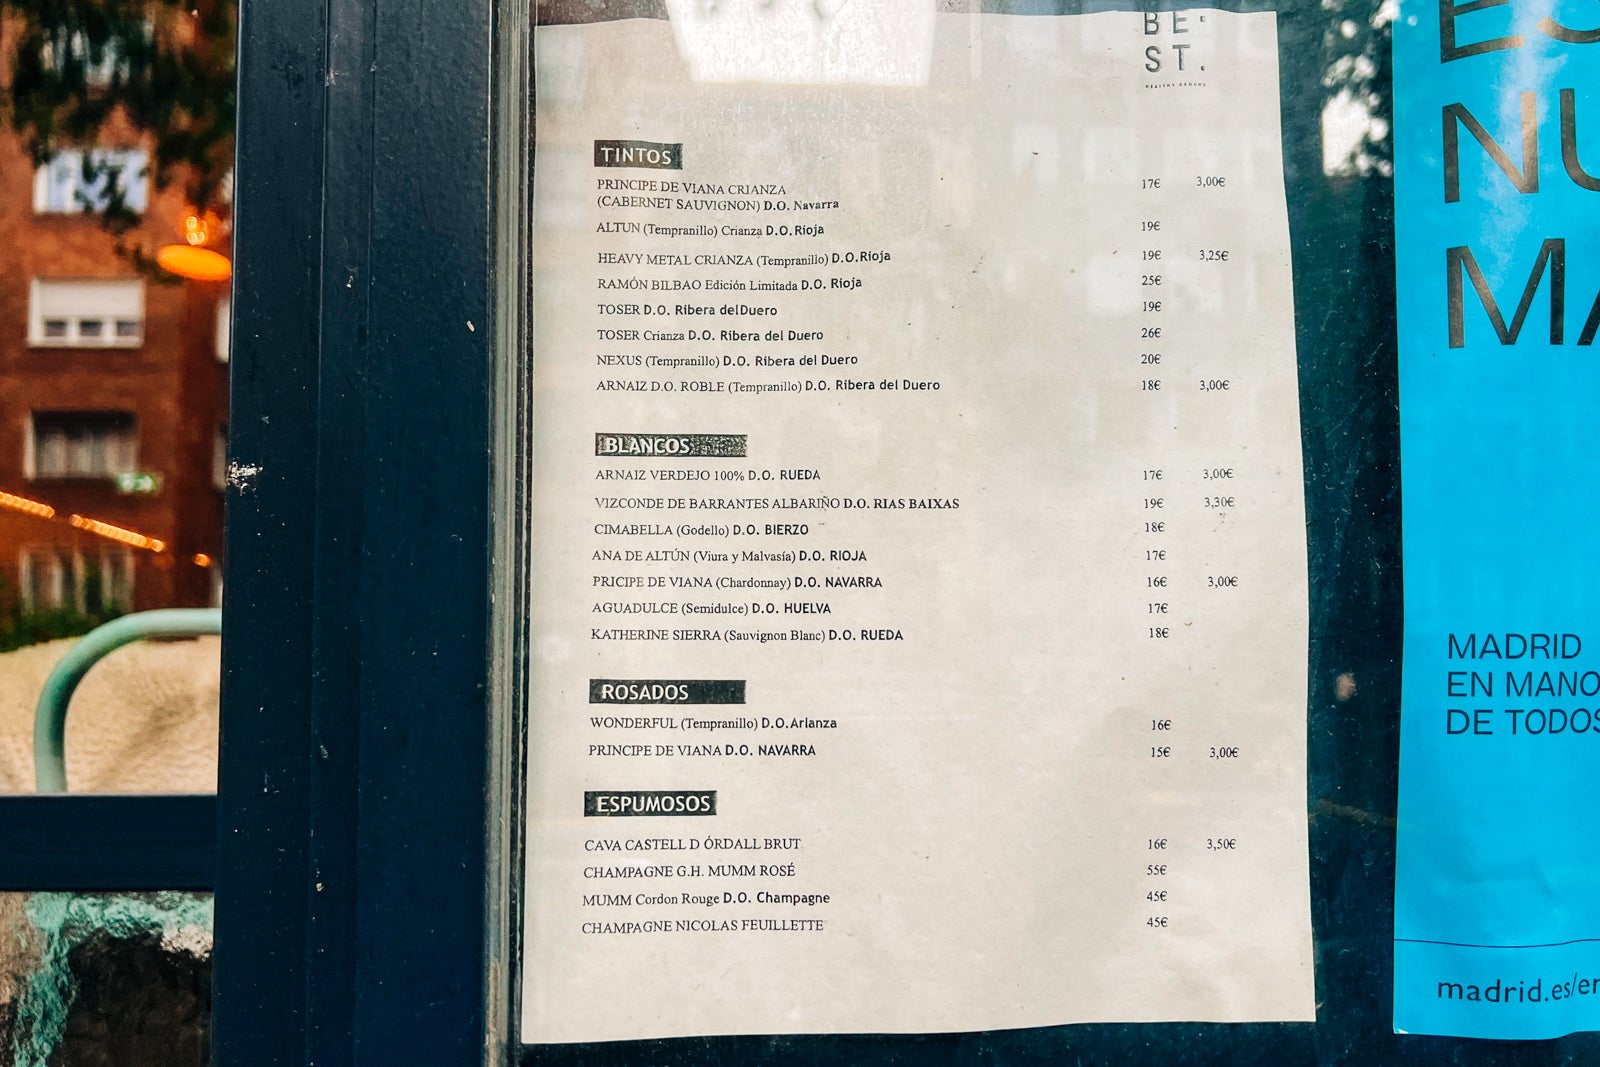 BE.
ST.
TINTOS
PRINCIPE DE VIANA CRIANZA 17€ 3,00€
(CABERNET SAUVIGNON) D.O. Navarra
ALTUN (Tempranillo) Crianza D.O.Rioja 19€
HEAVY METAL CRIANZA (Tempranillo) D.O.Rioja 19€ 3,25€
RAMÓN BILBAO Edición Limitada D.O. Rioja 25€
TOSER D.O. Ribera delDuero 19€
TOSER Crianza D.O. Ribera del Duero 26€
NEXUS (Tempranillo) D.O. Ribera del Duero 20€
ARNAIZ D.O. ROBLE (Tempranillo) D.O. Ribera del Duero 18€ 3,00€
BLANCOS
ARNAIZ VERDEJO 100% D.O. RUEDA 17€ 3,00€
VIZCONDE DE BARRANTES ALBARIÑO D.O. RIAS BAIXAS 19€ 3,30€
CIMABELLA (Godello) D.O. BIERZO 18€
ANA DE ALTÚN (Viura y Malvasía) D.O. RIOJA 17€
PRICIPE DE VIANA (Chardonnay) D.O. NAVARRA 16€ 3,00€
AGUADULCE (Semidulce) D.O. HUELVA 17€
KATHERINE SIERRA (Sauvignon Blanc) D.O. RUEDA 18€
ROSADOS
WONDERFUL (Tempranillo) D.O.Arlanza 16€
PRINCIPE DE VIANA D.O. NAVARRA 15€ 3,00€
ESPUMOSOS
CAVA CASTELL D ÓRDALL BRUT 16€ 3,50€
CHAMPAGNE G.H. MUMM ROSÉ 55€
MUMM Cordon Rouge D.O. Champagne 45€
CHAMPAGNE NICOLAS FEUILLETTE 45€
ES
NU
MA
MADRID
EN MANO
DE TODOS
madrid.es/en